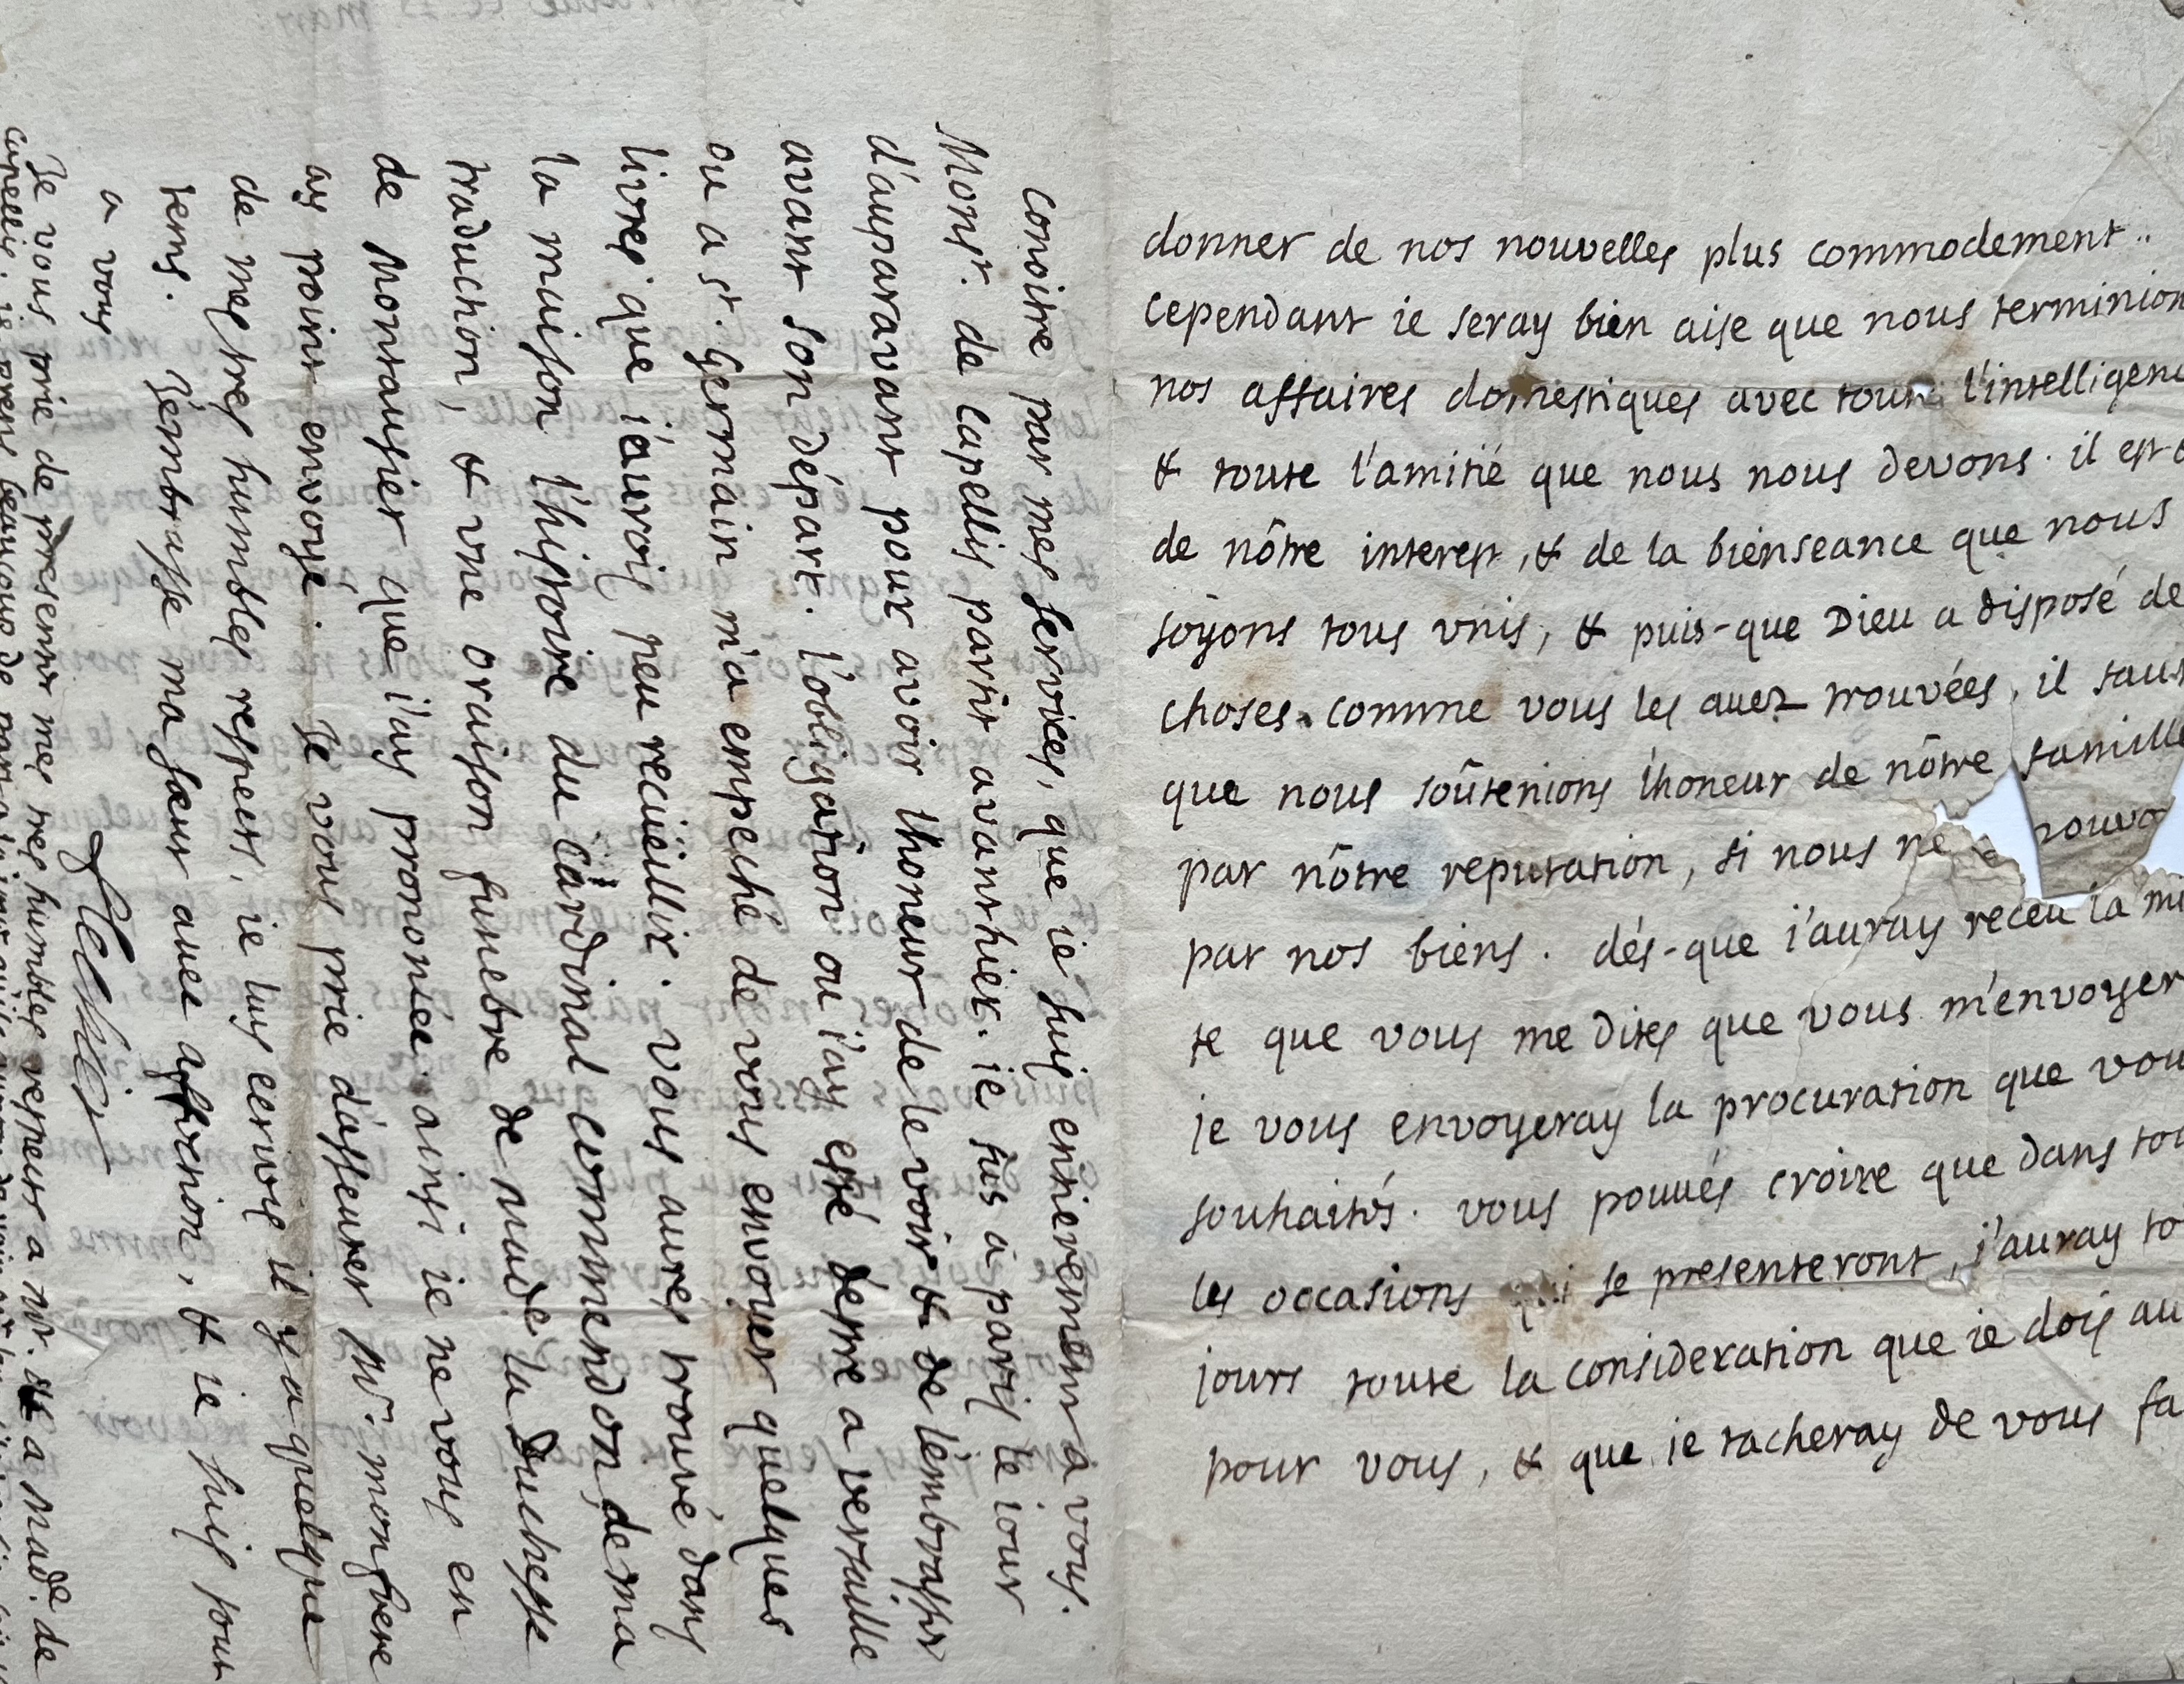 donner de nos nouvelles plus commodement..
cependant ie seray bien aise que nous terminion
nos affaires domestiques avec toute l'intelligenc
& toute l'amitié que nous nous devons. il est d
de nôtre interest, & de la bienseance que nous
soyons tous vnis, & puis-que Dieu a disposé de
choses comme vous les auez trouvées, il faut
que nous soûtenions l'honeur de nôtre famille
par nôtre reputation, si nous ne pouvo
par nos biens. dés-que j'auray receu la mi
te que vous me dites que vous m'envoyer
je vous envoyeray la procuration que vou
souhaités. vous pouués croire que dans tou
les occasions qui se presenteront, j'auray to
jours toute la consideration que ie dois au
pour vous, & que ie tacheray de vous fa
conoitre par mes services, que ie suis entierement a vous.
Monsr. de Capellis partit avanthier. ie fus a paris le iour
d'auparavant pour avoir l'honeur de le voir & de l'embrasser
avant son départ. l'obligation ou i'ay esté d'estre a versaille
ou a st. Germain m'a empeché de vous envoyer quelques
livres que i'aurois peu recüeillir. vous aures trouvé dans
la maison l'histoire du Cardinal Commendon, de ma
traduction, & vne oraison funebre de made. la Duchesse
de Montausier que i'ay prononcée. ainsi ie ne vous en
ay point envoyé. Je vous prie d'asseurer Mr. mon frere
de mes tres humbles respects, ie luy ecrivis il y a quelque
tems. J'embrasse ma sœur auec affection, & ie suis tout
a vous
Flechier
Je vous prie de presenter mes tres humbles respects a Mr. & a Made. de
Capellis. ie prens beaucoup de part a la